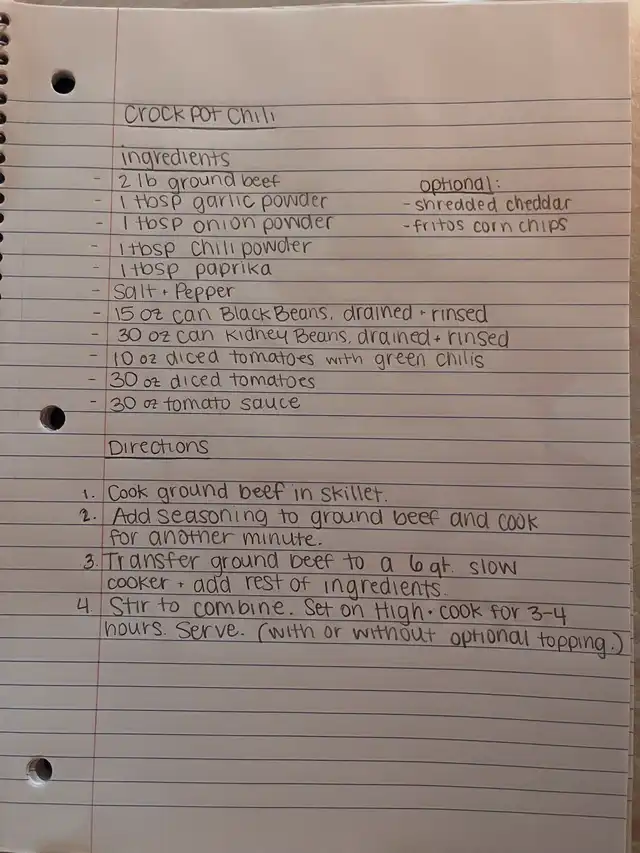 Crock Pot Chili
ingredients
- 2 lb ground beef
- 1 tbsp garlic powder
- 1 tbsp onion powder
- 1 tbsp chili powder
- 1 tbsp paprika
- Salt + Pepper
- 15 oz can Black Beans, drained + rinsed
- 30 oz can Kidney Beans, drained + rinsed
- 10 oz diced tomatoes with green chilis
- 30 oz diced tomatoes
- 30 oz tomato sauce
optional:
- shredded cheddar
- fritos corn chips
Directions
1. Cook ground beef in skillet.
2. Add seasoning to ground beef and cook
for another minute.
3. Transfer ground beef to a 6 qt. slow
cooker + add rest of ingredients.
4. Stir to combine. Set on High + cook for 3-4
hours. Serve. (with or without optional topping.)